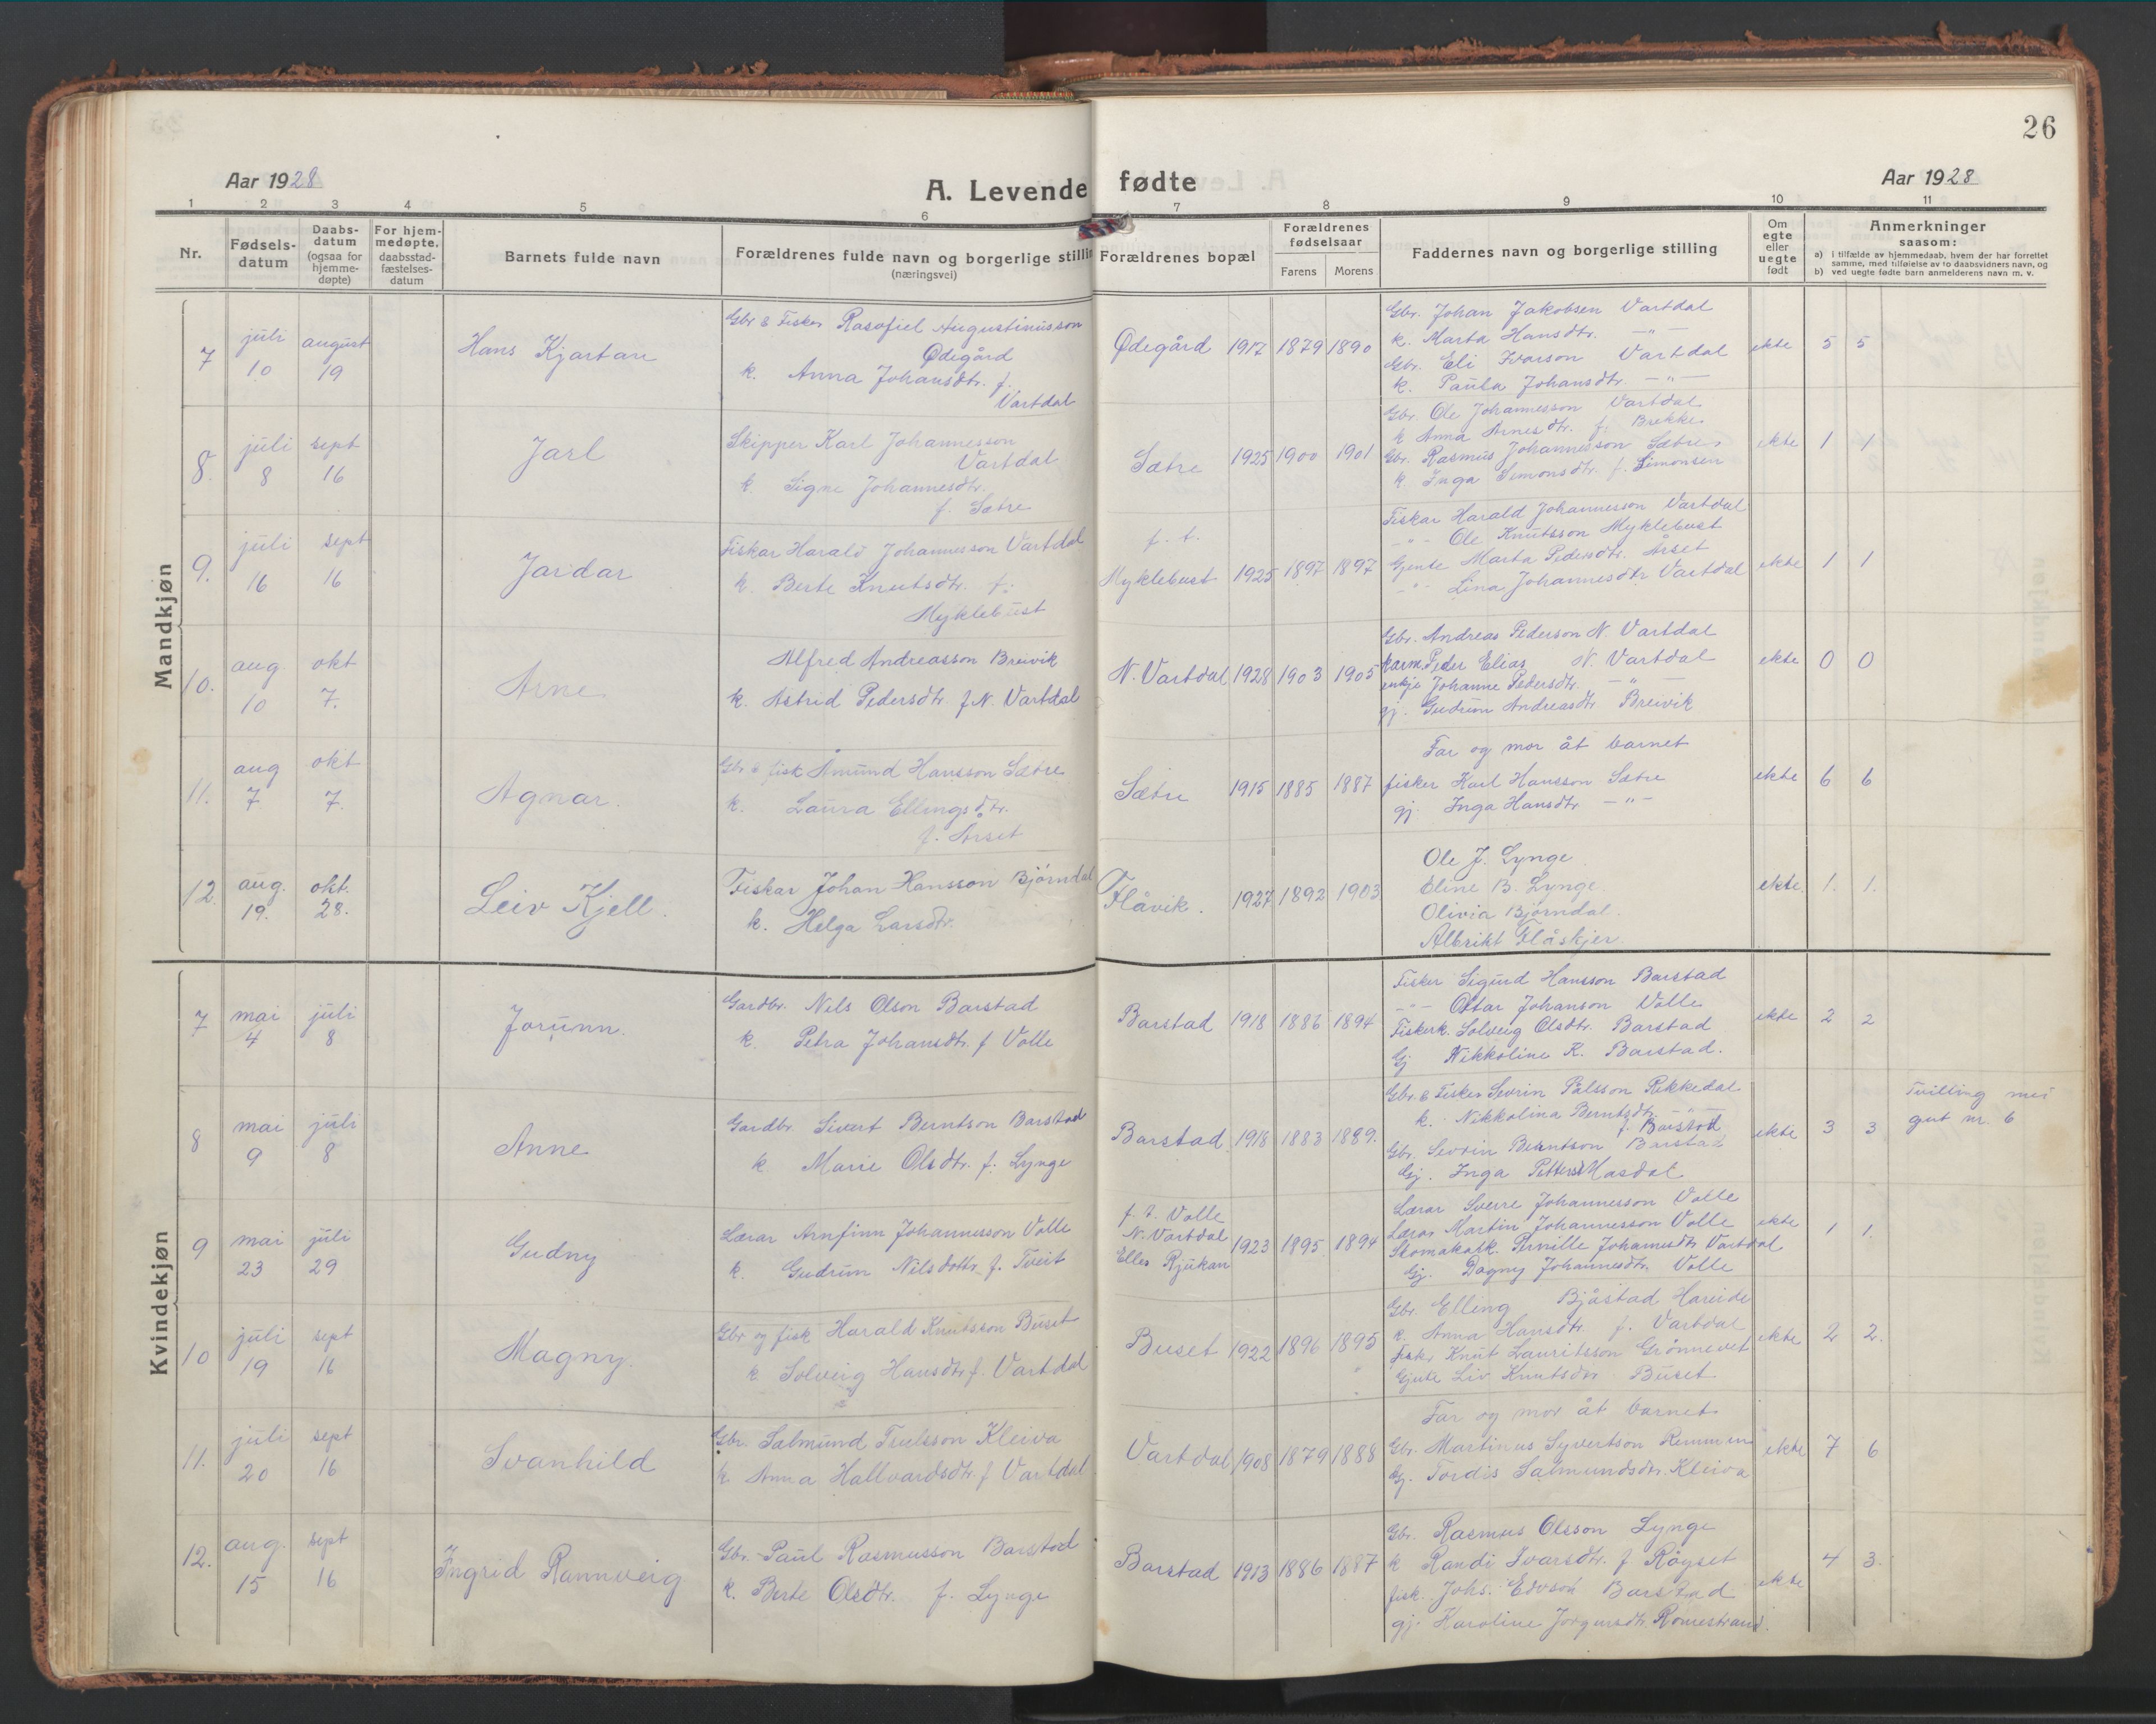 26
Aar 1928
A. Levende fødte
Aar 1928
1 2 3 4 5 6 7 8 9 10 11
Nr.
Fødsels-
datum
Daabs-
datum
(ogsaa for
hjemme-
døpte)
For hjem-
medøpte.
daabsstad-
fæstelses-
datum
Barnets fulde navn
Forældrenes fulde navn og borgerlige stillin
(næringsvei)
Forældrenes bopæl
Forældrenes
fødselsaar
Farens Morens
Faddernes navn og borgerlige stilling
Om
egte
eller
uegte
født
Anmerkninger
saasom:
a) i tilfælde av hjemmedaab, hvem der har forrettet
samme, med tilføielse av to daabsvidners navn, og
b) ved uegte fødte barn anmelderens navn m. v.
Mandkjøn
7
juli
10
august
19
Hans Kjartan
Gbr & Fisker Rasofiel Augustinusson
Ødegård
k. Anna Johansdtr. f.
Vartdal
Ødegård 1917 1879 1890
Gbr. Johan Jakobsen Vartdal
k. Marta Hansdtr. —"—
Gbr. Eli Ivarson Vartdal
k. Paula Johansdtr. —"—
ekte 5 5
8.
juli
8
sept
16
Jarl
Skipper Karl Johannesson
Vartdal
k. Signe Johannesdtr.
f. Sætre
Sætre 1925 1900 1901
Gbr. Ole Johannesson Vartdal
k Anna Arnesdtr. f. Brekke
Gbr. Rasmus Johannesson Sætre
k. Inga Simonsdtr. f. Simonsen
ekte 1 1
9.
juli
16
sept
16
Jardar
Fiskar Harald Johannesson Vartdal
k. Berte Knutsdtr. f.
Myklebust
f. t.
Myklebust 1925 1897 1897
Fiskar Harald Johannesson Vartdal
—"— Ole Knutsson Myklebust
Gjente Marta Pedersdtr. Årset
—"— Lina Johannesdtr Vartdal
ekte 1 1
10.
aug.
10
okt
7.
Arne
Alfred Andreasson Breivik
k. Astrid Pedersdtr f N. Vartdal
N. Vartdal 1928 1903 1905
Gbr. Andreas Pederson N. Vartdal
Karm. Peder Elias N. Vartdal
enkje Johanne Pedersdtr. —"—
gj. Gudrun Andreasdtr Breivik
ekte 0 0
11.
aug
7
okt
7.
Agnar.
Gbr & fisk Åmund Hansson Sætre
k. Laura Ellingsdtr.
f. Årset
Sætre 1915 1885 1887
Far og mor åt barnet
fisker Karl Hansson Sætre
gj. Inga Hansdtr —"—
ekte 6 6
12.
aug.
19.
okt.
28.
Leiv Kjell.
Fiskar Johan Hansson Bjørndal
k. Helga Larsdtr.
Flåvik. 1927 1892 1903
Ole J. Lynge
Eline B. Lynge.
Olivia Bjørndal.
Albrikt Flåskjer.
ekte. 1. 1.
Kvindekjøn
7
mai
4
juli
8
Jorunn.
Gardbr. Nils Olson Barstad
k. Petra Johansdtr. f Volle
Barstad 1918 1886 1894
Fisker Sigurd Hansson Barstad
—"— Ottar Johanson Volle
Fiskerk. Solveig Olsdtr. Barstad
Gj Nikkoline K. Barstad.
ekte 2 2
8
mai
9
juli
8
Anne
Gardbr. Sivert Berntson Barstad
k Marie Olsdtr. f. Lynge
Barstad 1918 1883 1889.
Gbr. & Fisker Sevrin Pålsson Rekkedal
k. Nikkolina Berntsdtr —"—
f. Barstad
Gbr. Sevrin Berntson Barstad
Gj. Inga Pettersd Masdal
ekte 3 3
Tvilling mei
gut nr. 6
9
mai
23
juli
29
Gudny
Lærar Arnfinn Johannesson Volle
k. Gudrun Nilsdottr f. Tveit
f. t. Volle
N. Vartdal
Elles Rjukan 1923 1895 1894
Lærar Sverre Johannesson Volle
Lærar Martin Johannesson Volle
Skomakark. Pernille Johannesdtr Vartdal
Gj. Dagny Johannesdtr. Volle
ekte 1 1.
10
juli
19
sept
16
Magny.
Gbr og fisk Harald Knutsson Buset
k Solveig Hansdtr f. Vartdal
Buset 1922 1896 1895
Gbr. Elling Bjåstad Hareide
k. Anna Hansdtr. f. Vartdal
Fisker Knut Lauritsson Grønnevet
Gjente Liv Knutsdtr Buset
ekte 2 2.
11.
juli
20
sept
16
Svanhild
Gbr. Salmund Trulsson Kleiva
k. Anna Hallvardsdtr. f Vartdal
Vartdal 1908 1879 1888
Far og mor åt barnet.
Gbr. Martinus Syvertson Remmen
Gj. Tordis Salmundsdtr. Kleiva
ekte 7 6
12.
aug.
15
sept
16
Ingrid Rannveig
Gbr. Paul Rasmusson Barstad
k. Berte Olsdtr. f. Lynge
Barstad 1913 1886 1887
Gbr. Rasmus Olsson Lynge
k Randi Ivarsdtr. f Røyset
fisk. Johs. Edvson Barstad
gj. Karoline Jørgensdtr. Romestrand.
ekte 4 3.